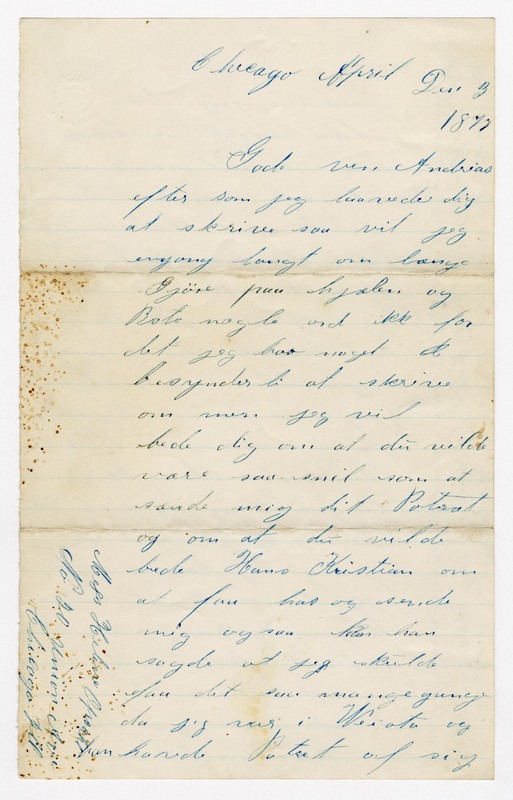 Chicago April Den 3
1877
Gode ven Andrias
efter som jeg laavede dig
at skrive saa vil jeg
engang langt om længe
Gjöre paa hjælen og
Rote nogle ord ikk for
det jeg har noget
besynderli at skrive
om men jeg vil
bede dig om at du vilde
være saa snil som at
sænde mig dit Potræt
og om at du vilde
bede Hans Kristian om
at faa has og sende
mig ogsaa han
sagde at jeg skulde
faa det saa mange gange
da jeg var i og
han havde Potræt af sig
Miss
No 20 Union
Chicago Ill